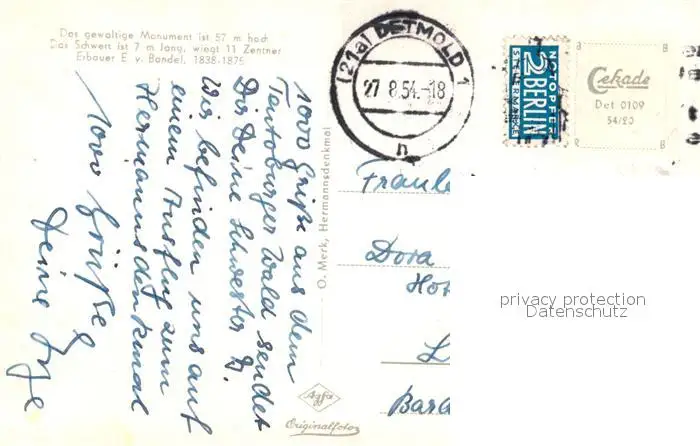 Das gewaltige Monument ist 57 m hoch
Das Schwert ist 7 m lang, wiegt 11 Zentner
Erbauer E. v. Bandel, 1838-1875
(21a) DETMOLD 1
27.8.54.-18
n
NOTOPFER
2 BERLIN
STEUERMARKE
Cekade
Det 0109
54/20
1000 Grüße aus dem
Teutoburger Wald sendet
Dir Deine Schwester
Wir befinden uns auf
einem Ausflug zum
Hermannsdenkmal
1000 Grüße
Deine Inge
O. Merk, Hermannsdenkmal
Agfa
Originalfoto
Dora
privacy protection
Datenschutz